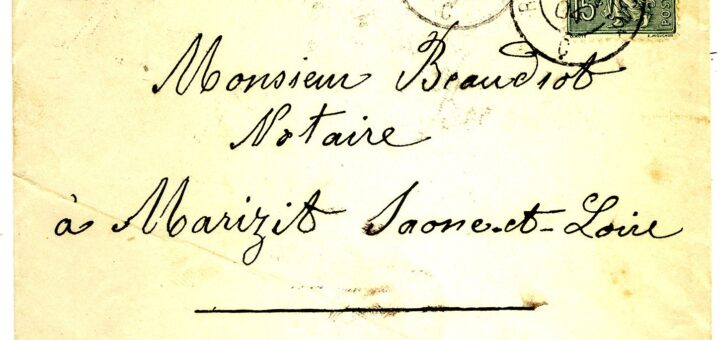 15
POS
Monsieur Beaudiot
Notaire
à Marizit Saone-et-Loire